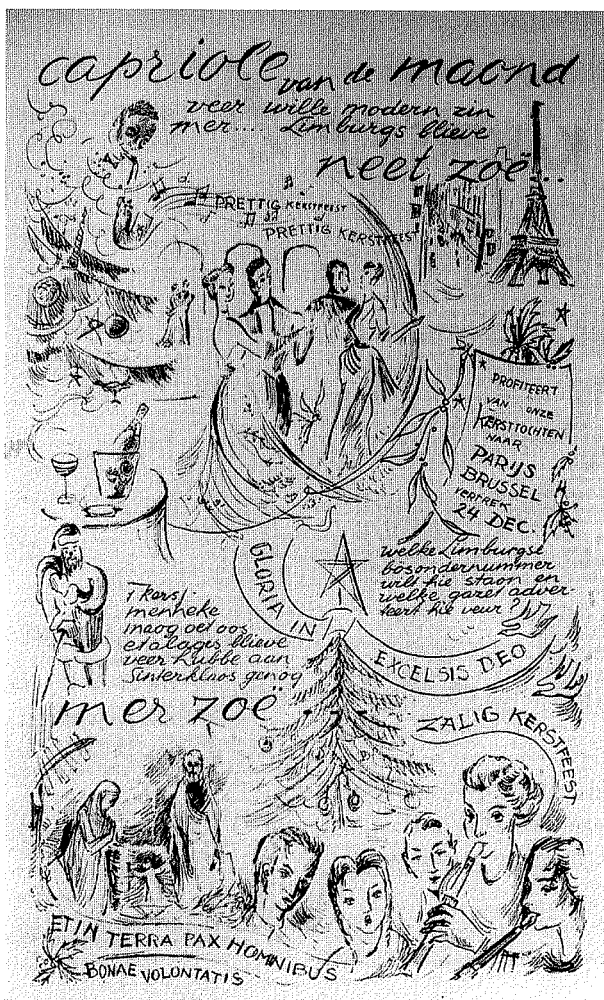 capriole van de maond
veer wille modern zin
mer... Limburgs blieve
neet zoë...
PRETTIG KERSTFEEST
PRETTIG KERSTFEEST
PROFITEERT
VAN ONZE
KERSTTOCHTEN
NAAR
PARIJS
BRUSSEL
VERTREK
24 DEC.
welke Limburgse
bosondernummer
wilt hie staon en
welke garet adver-
teert hie veur?
GLORIA IN
EXCELSIS DEO
't kerst-
menneke
maog oet oos
etalages blieve
veer hubbe aan
Sinterkloos genog
mer zoë
ZALIG KERSTFEEST
ET IN TERRA PAX HOMNIBUS
BONAE VOLONTATIS